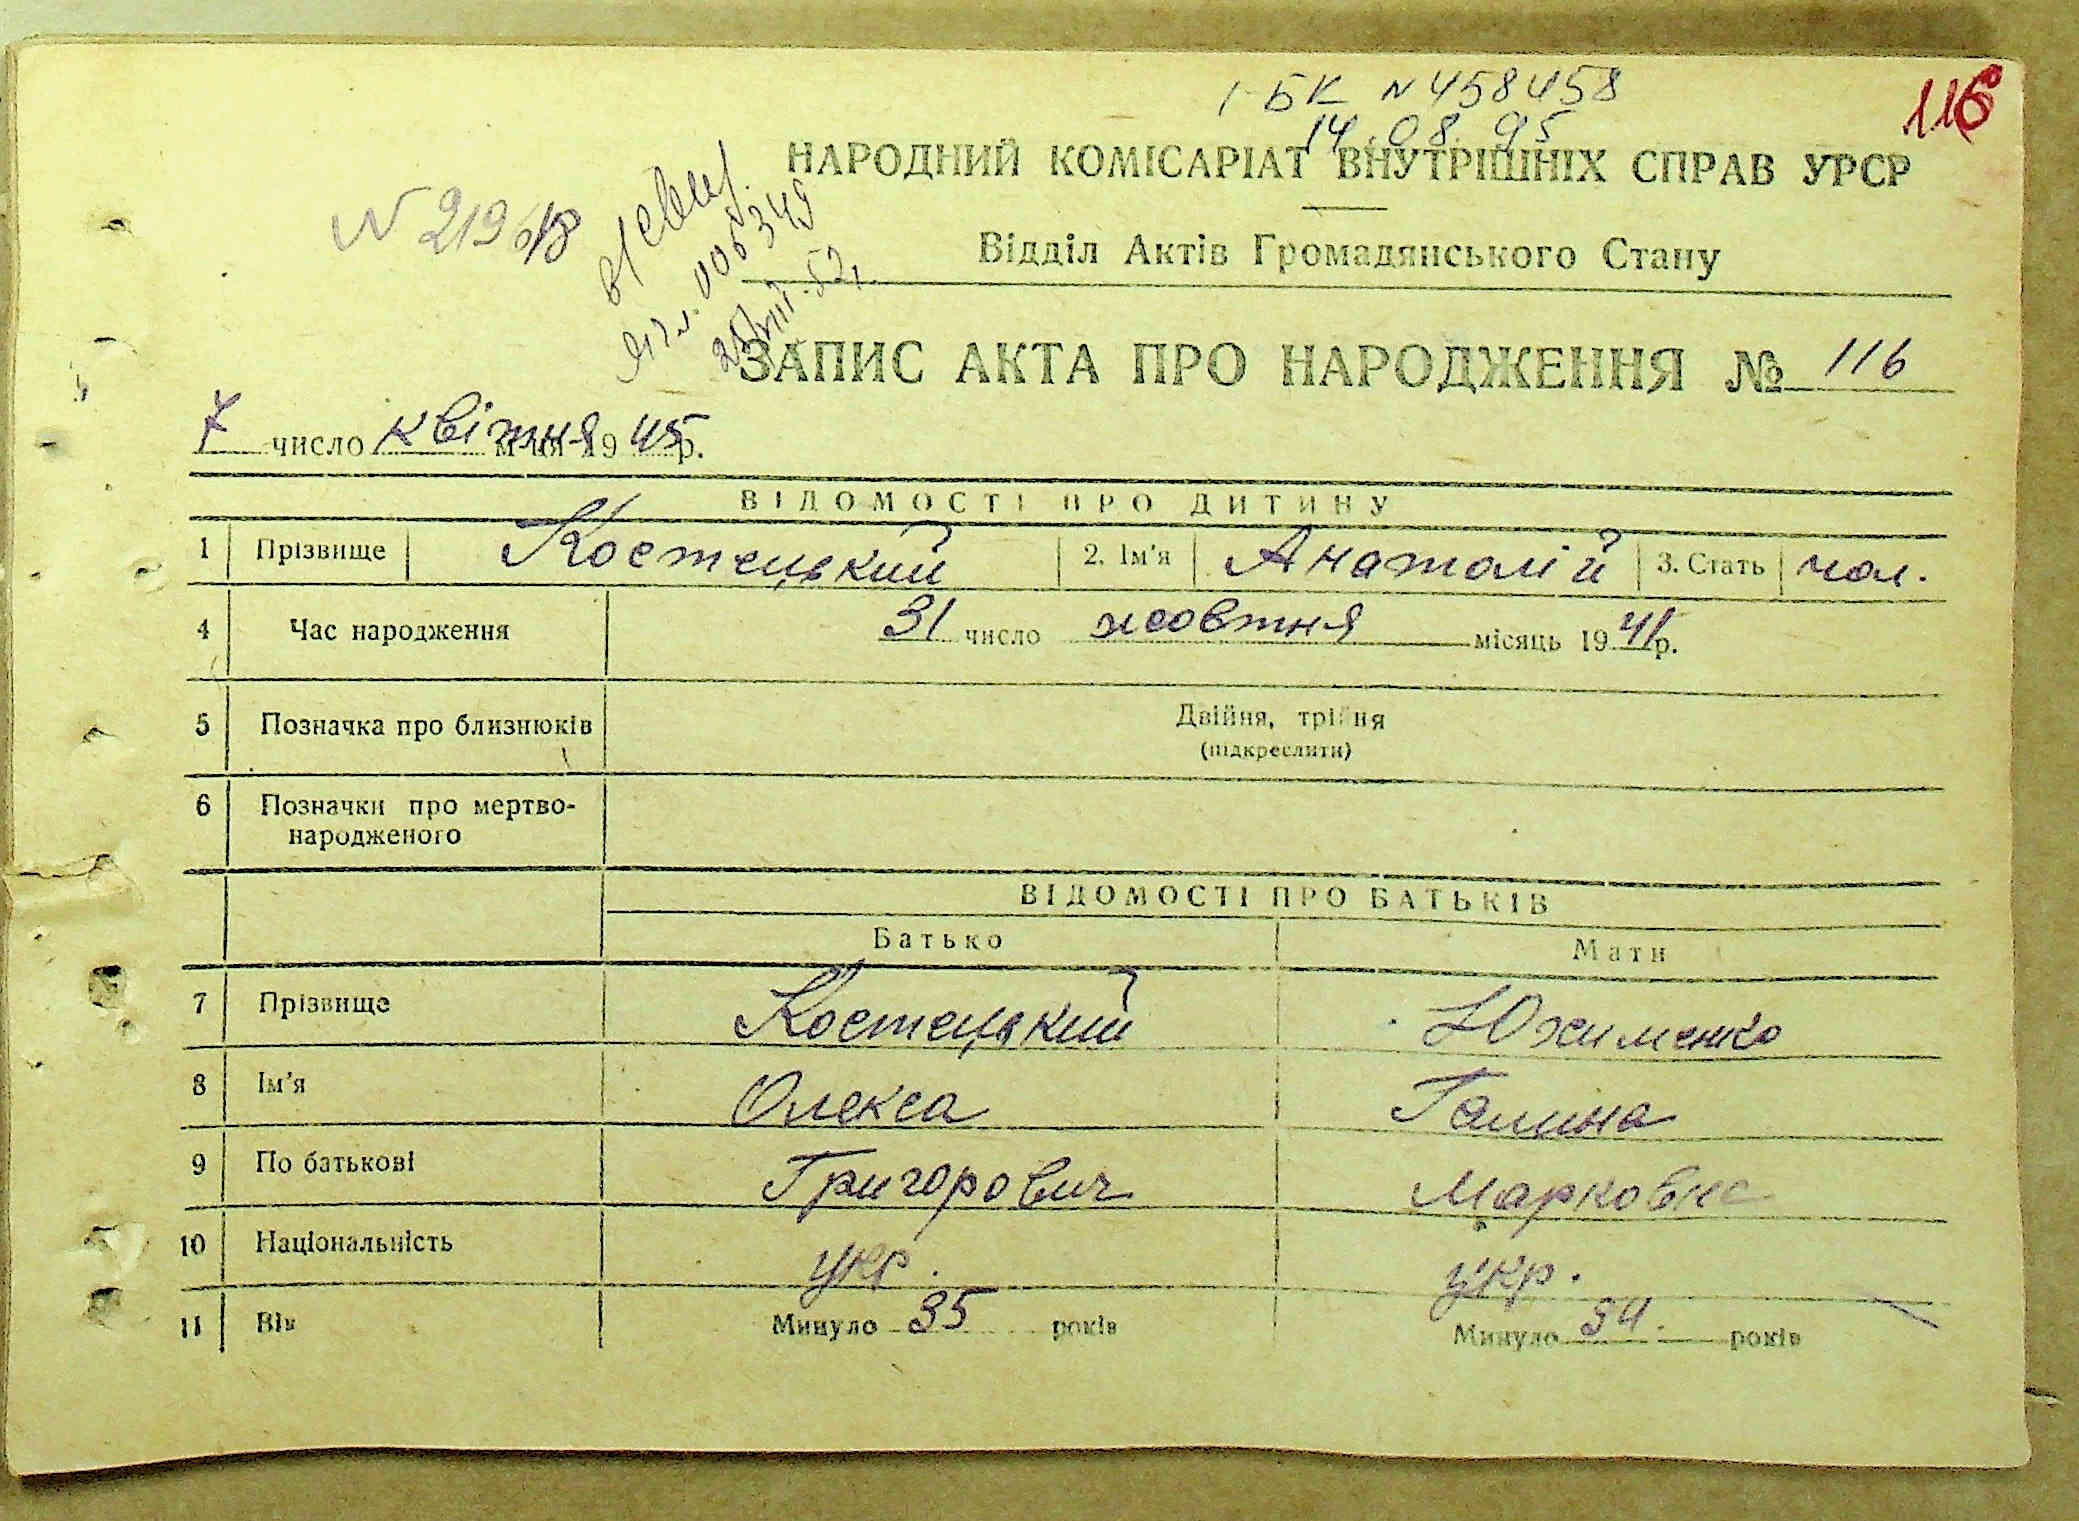 I-БК N 458458
14.08.95
116
НАРОДНИЙ КОМІСАРІАТ ВНУТРІШНІХ СПРАВ УРСР
N 219
Відділ Актів Громадянського Стану
ЗАПИС АКТА ПРО НАРОДЖЕННЯ № 116
7 число квітня м-ця 1945 р.
ВІДОМОСТІ ПРО ДИТИНУ
1 Прізвище Костецький 2. Ім'я Анатолій 3. Стать чол.
4 Час народження 31 число жовтня місяць 1941 р.
5 Позначка про близнюків Двійня, трійня
(підкреслити)
6 Позначки про мертво-
народженого
ВІДОМОСТІ ПРО БАТЬКІВ
Батько Мати
7 Прізвище Костецький Юхименко
8 Ім'я Олекса Галина
9 По батькові Григорович Марковна
10 Національність укр. укр.
11 Вік Минуло 35 років Минуло 34 років